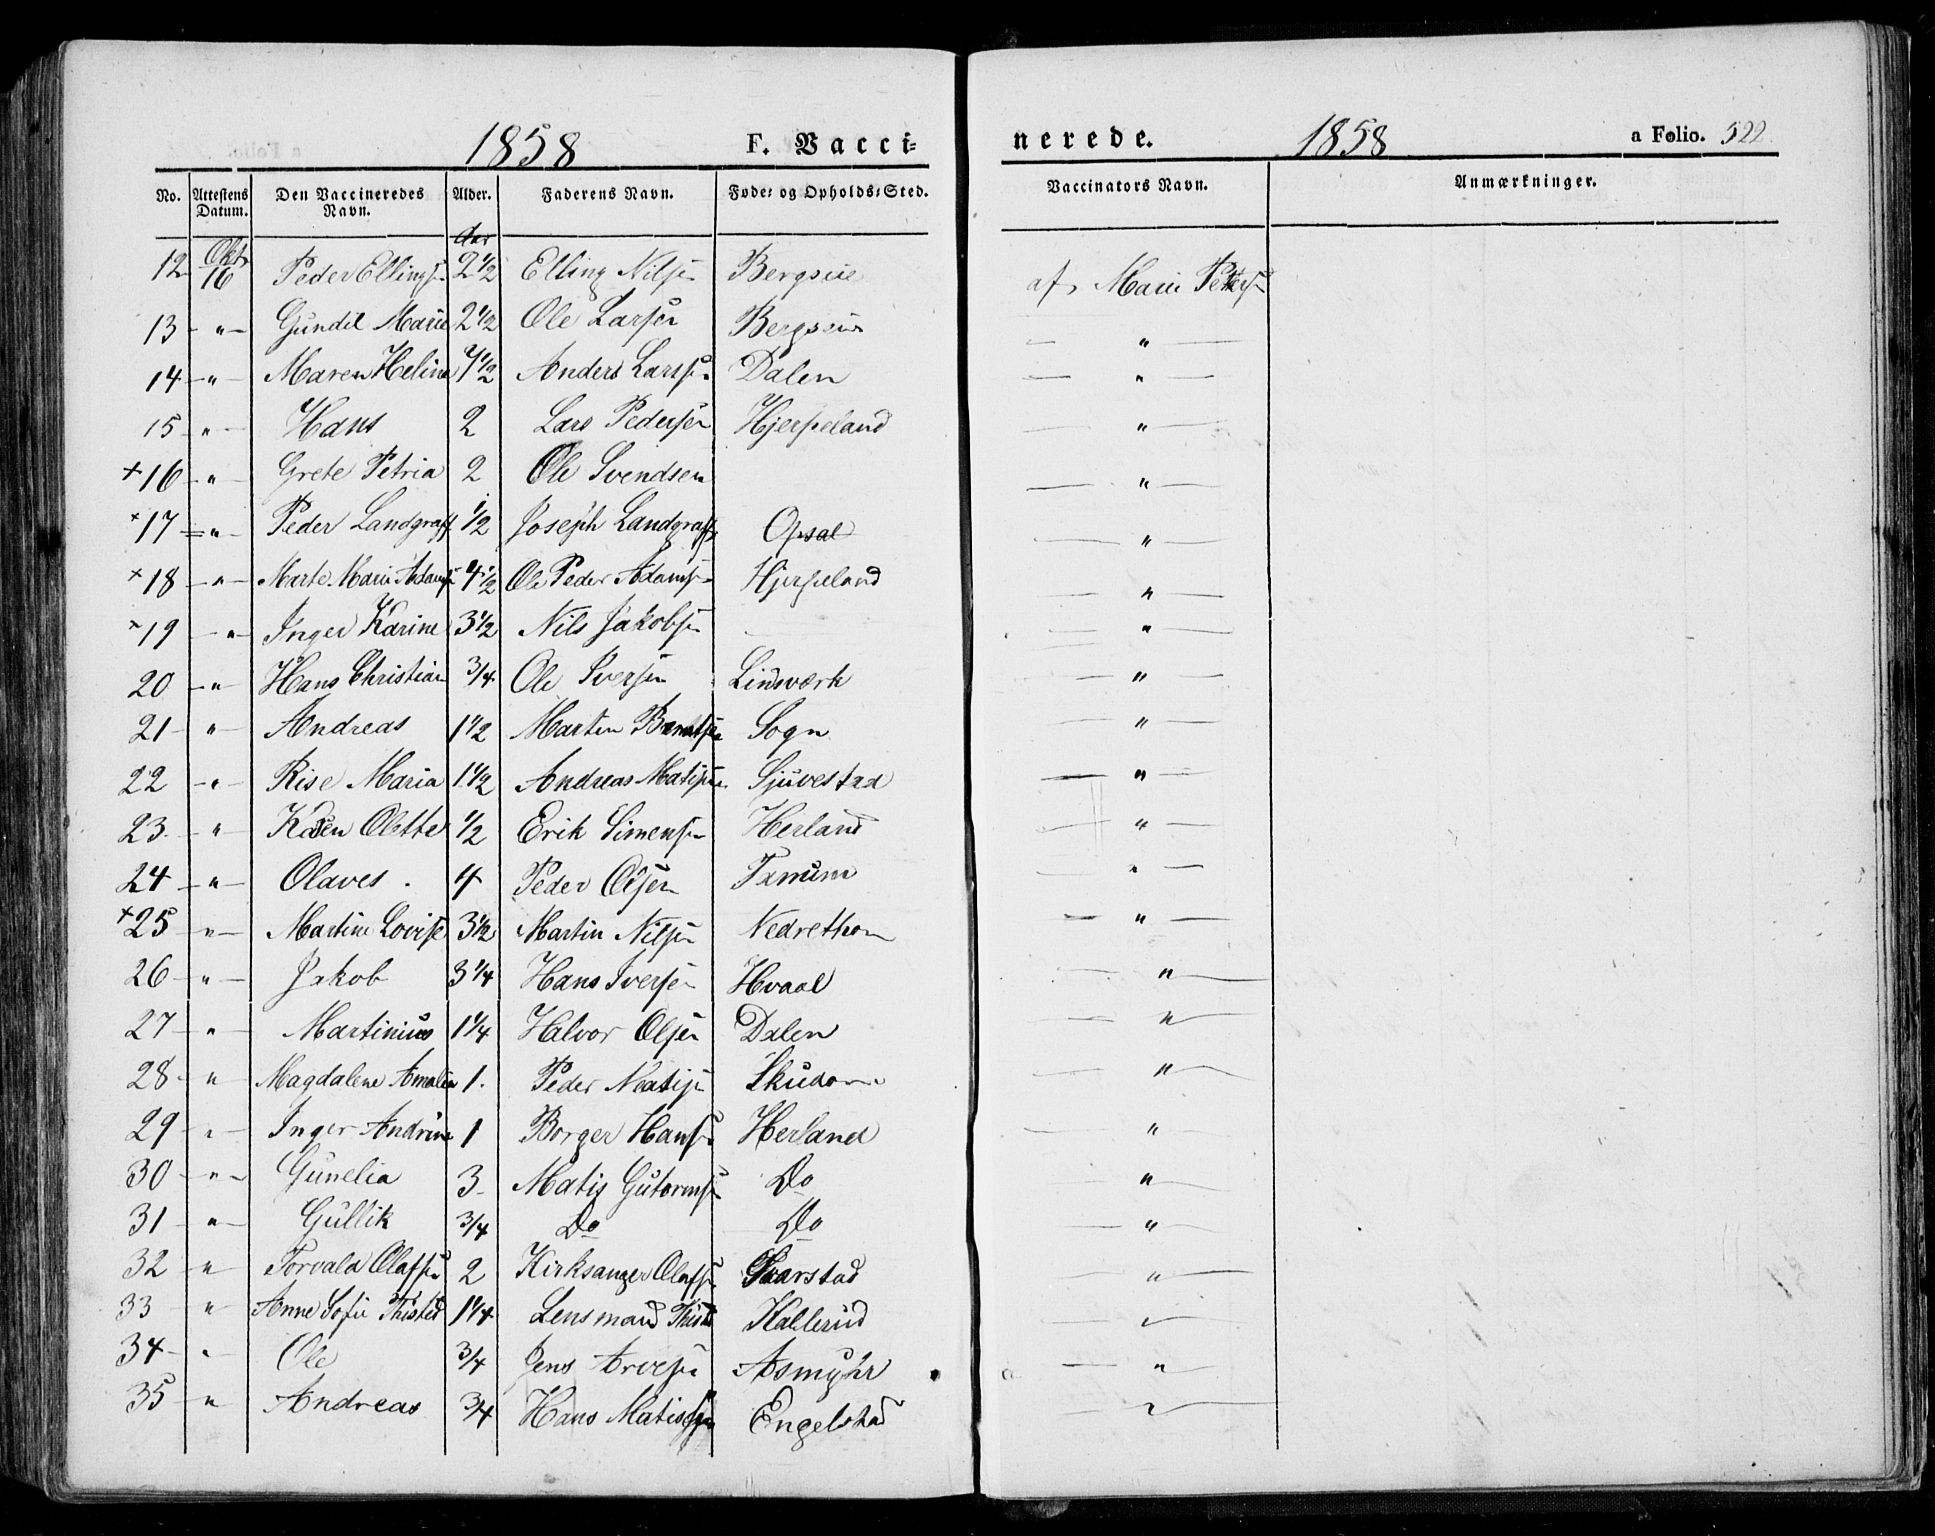 1858 F. Vacci= nerede. 1858 a Folio. 522
No. Attestens Datum. Den Vaccineredes Navn. Alder. Faderens Navn. Føde= og Opholds=Sted. Vaccinators Navn. Anmærkninger.
Aar
12 Oktr 16 Peder Ellings 2 1/2 Elling Nilsen Bergsue af Marie Petersn
13 — " — Gundil Marie 2 1/2 Ole Larsen Bergsue — " —
14 — " — Maren Heline 7 1/2 Anders Larsen Dalen — " —
15 — " — Hans 2 Lars Pedersen Hjerpeland — " —
+ 16 — " — Grete Petria 2 Ole Svendsen — " —
+ 17 — " — Peder Landgraff 1/2 Joseph Landgraff Opsal — " —
+ 18 — " — Marte Marie Adams 4 1/2 Ole Peder Adams Hjerpeland — " —
19 — " — Inger Karine 3 1/2 Nils Jakobsn — " —
20 — " — Hans Christian 3/4 Ole Iversen Lindværk — " —
21 — " — Andreas 1 1/2 Martin Berntsen Sogn — " —
22 — " — Rise Maria 1 1/2 Andreas Matisen Sjuvestad — " —
23 — " — Karen Olette 1/2 Erik Simensn Herland — " —
24 — " — Olaves 4 Peder Olsen Fanum — " —
+ 25 — " — Martine Lovise 3 1/2 Martin Nilsn Nedrethon — " —
26 — " — Jakob 3 1/4 Hans Iversen Hvaal — " —
27 — " — Martinius 1 1/4 Halvor Olsen Dalen — " —
28 — " Magdalene Amalia 1. Peder — " —
29 — " — Inger Andrine 1 Borger Hans Herland — " —
30 — " — Gunelia 3 Matis Gutormsn Do — " —
31 — " — Gullik 3/4 Do Do — " —
32 " Torvald Olafsen 2 Kirksanger Olafsn — " —
33 " Anne Sofie Thisted 1 1/4 Lensmand Thisted Hallerud — " —
34 — " Ole 3/4 Jens Arvesen Asmyhr — " —
35 " Andreas 3/4 Hans Matisen Engelstad — " —